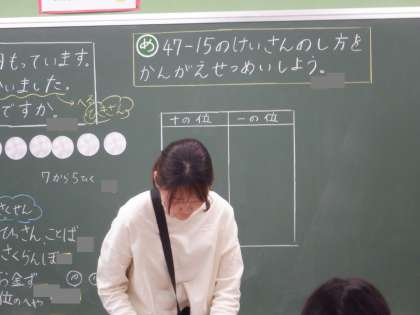 もっています。
いました。
ですか。
ひきざん
め 47-15のけいさんのし方を
かんがえせつめいしよう。
十の位 一の位
7から5ひく
さくせん
ひっさん、ことば
さくらんぼ
お金ず
位のへや